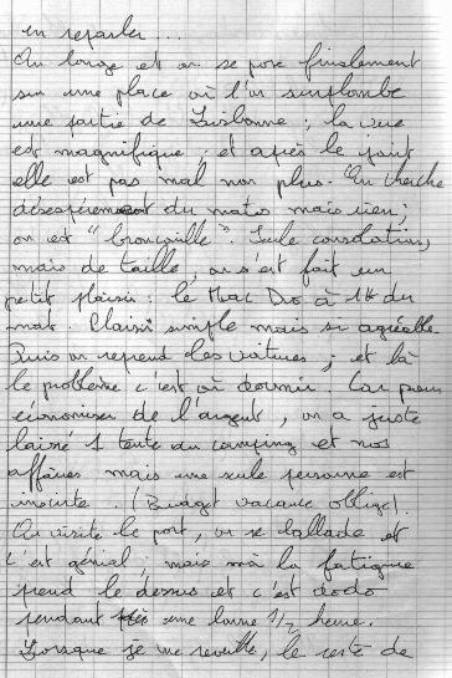 en reparler...
On longe et on se pose finalement
sur une place où l'on surplombe
une partie de Lisbonne ; la vue
est magnifique ; et après le joint
elle est pas mal non plus. On cherche
désespérement du matos mais rien ;
on est "broncaille". Seule consolation,
mais de taille, on s'est fait un
petit plaisir : le Mac Do à 1h du
mat. Plaisir simple mais si agréable.
Puis on reprend les voitures ; et là
le problème c'est où dormir. Car pour
économiser de l'argent, on a juste
laissé 1 tente au camping et nos
affaires mais une seule personne est
inscrite. (Budget vacance oblige).
On visite le port, on se ballade et
c'est génial ; mais moi la fatigue
prend le dessus et c'est dodo
pendant une bonne 1/2 heure.
Lorsque je me reveille, le reste de